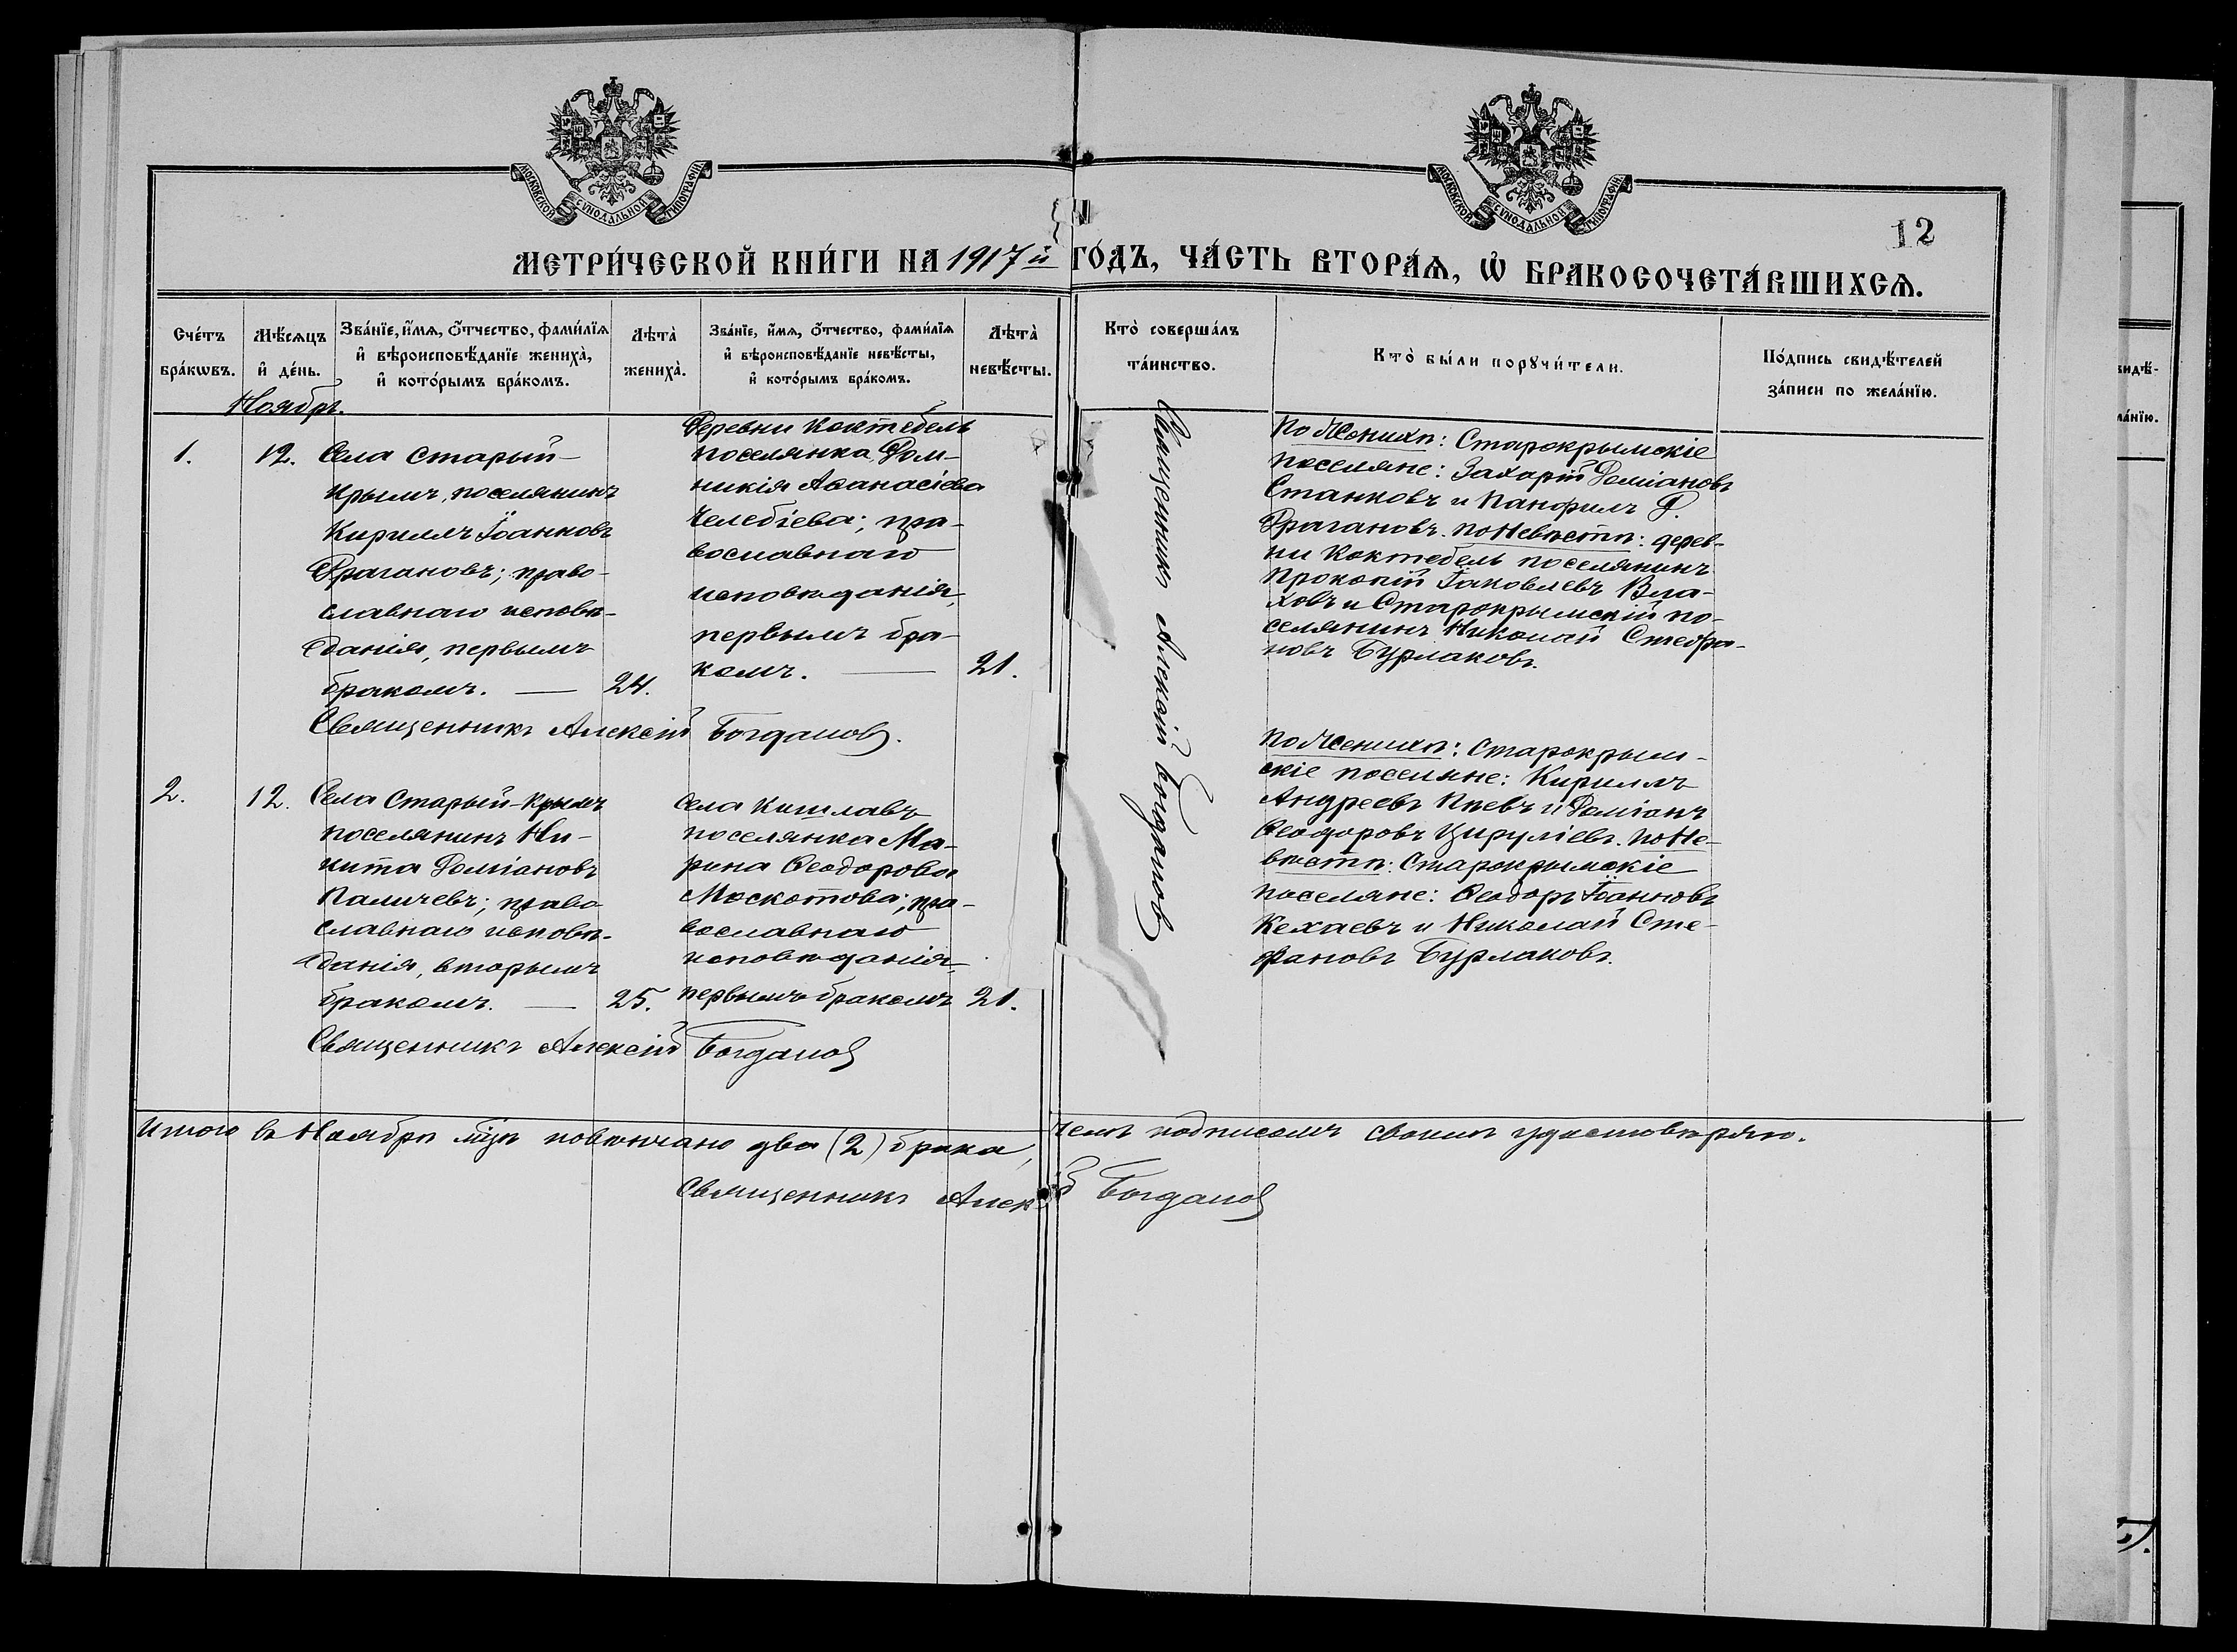 МОСКОВСКОЙ СѴНОДАЛЬНОЙ ТИПОГРАФІИ
МОСКОВСКОЙ СѴНОДАЛЬНОЙ ТИПОГРАФІИ
12
МЕТРИ́ЧЕСКОЙ КНИ́ГИ НА 1917й ГО́ДЪ, ЧА́СТЬ ВТОРА́Ѧ, Ѽ БРАКОСОЧЕТА́ВШИХСѦ.
Сче́тъ
бра́кѡвъ.
Мѣ́сѧцъ
и҆ де́нь.
Зва́нїе, и҆́мѧ, ѻ҆́тчество, фами́лїѧ
и҆ вѣроисповѣ́данїе жениха̀,
и҆ кото́рымъ бра́комъ.
Лѣта̀
жениха̀.
Зва́нїе, и҆́мѧ, ѻ҆́тчество, фами́лїѧ
и҆ вѣроисповѣ́данїе невѣ́сты,
и҆ кото́рымъ бра́комъ.
Лѣта̀
невѣ́сты.
Кто̀ соверша́лъ
та́инство.
Кто̀ бы́ли порꙋчи́тели.
По́дпись свидѣ́телей
за́писи по жела́нїю.
Ноябрь.
1.
12.
Села Старый-
Крымъ, поселянинъ
Кириллъ Іоанновъ
Драгановъ; право-
славнаго исповѣ-
данія, первымъ
бракомъ. — 24.
Деревни Коктебель
поселянка Дом-
никія Аѳанасіева
Челебіева; пра-
вославнаго
исповѣданія,
первымъ бра-
комъ. — 21.
Священникъ Алексій Богдановъ.
Священникъ Алексій Богдановъ
По Женихѣ: Старокрымскіе
поселяне: Захарій Даміановъ
Станковъ и Панфилъ Д.
Драгановъ. По Невѣстѣ: дерев-
ни Коктебель поселянинъ
Прокопій Іаковлевъ Вла-
ховъ и Старокрымскій по-
селянинъ Николай Стефа-
новъ Бурлаковъ.
2.
12.
Села Старый-Крымъ
поселянинъ Ни-
кита Даміановъ
Паличевъ; право-
славнаго исповѣ-
данія, вторымъ
бракомъ. — 25.
Села Кишлавъ
поселянка Ма-
рина Ѳеодорова
Москотова; пра-
вославнаго
исповѣданія,
первымъ бракомъ 21.
Священникъ Алексій Богдановъ
По Женихѣ: Старокрым-
скіе поселяне: Кириллъ
Андреевъ Пѣевъ и Даміанъ
Ѳеодоровъ Цируліевъ. По Не-
вѣстѣ: Старокрымскіе
поселяне: Ѳеодоръ Іоанновъ
Кехаевъ и Николай Сте-
фановъ Бурлаковъ.
Итого въ Ноябрѣ мцѣ повѣнчано два (2) брака, чемъ подписомъ своимъ удостовѣряю.
Священникъ Алексій Богдановъ